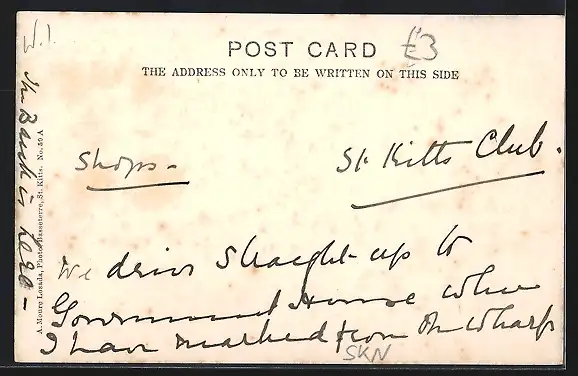 W.I.
POST CARD
£3
THE ADDRESS ONLY TO BE WRITTEN ON THIS SIDE
Shops -
St. Kitts Club.
We drive straight up to
Government House where
I have marked from the wharf
SKN
The Band is here -
A. Moure Losada, Photo, Basseterre, St. Kitts. No. 50 A